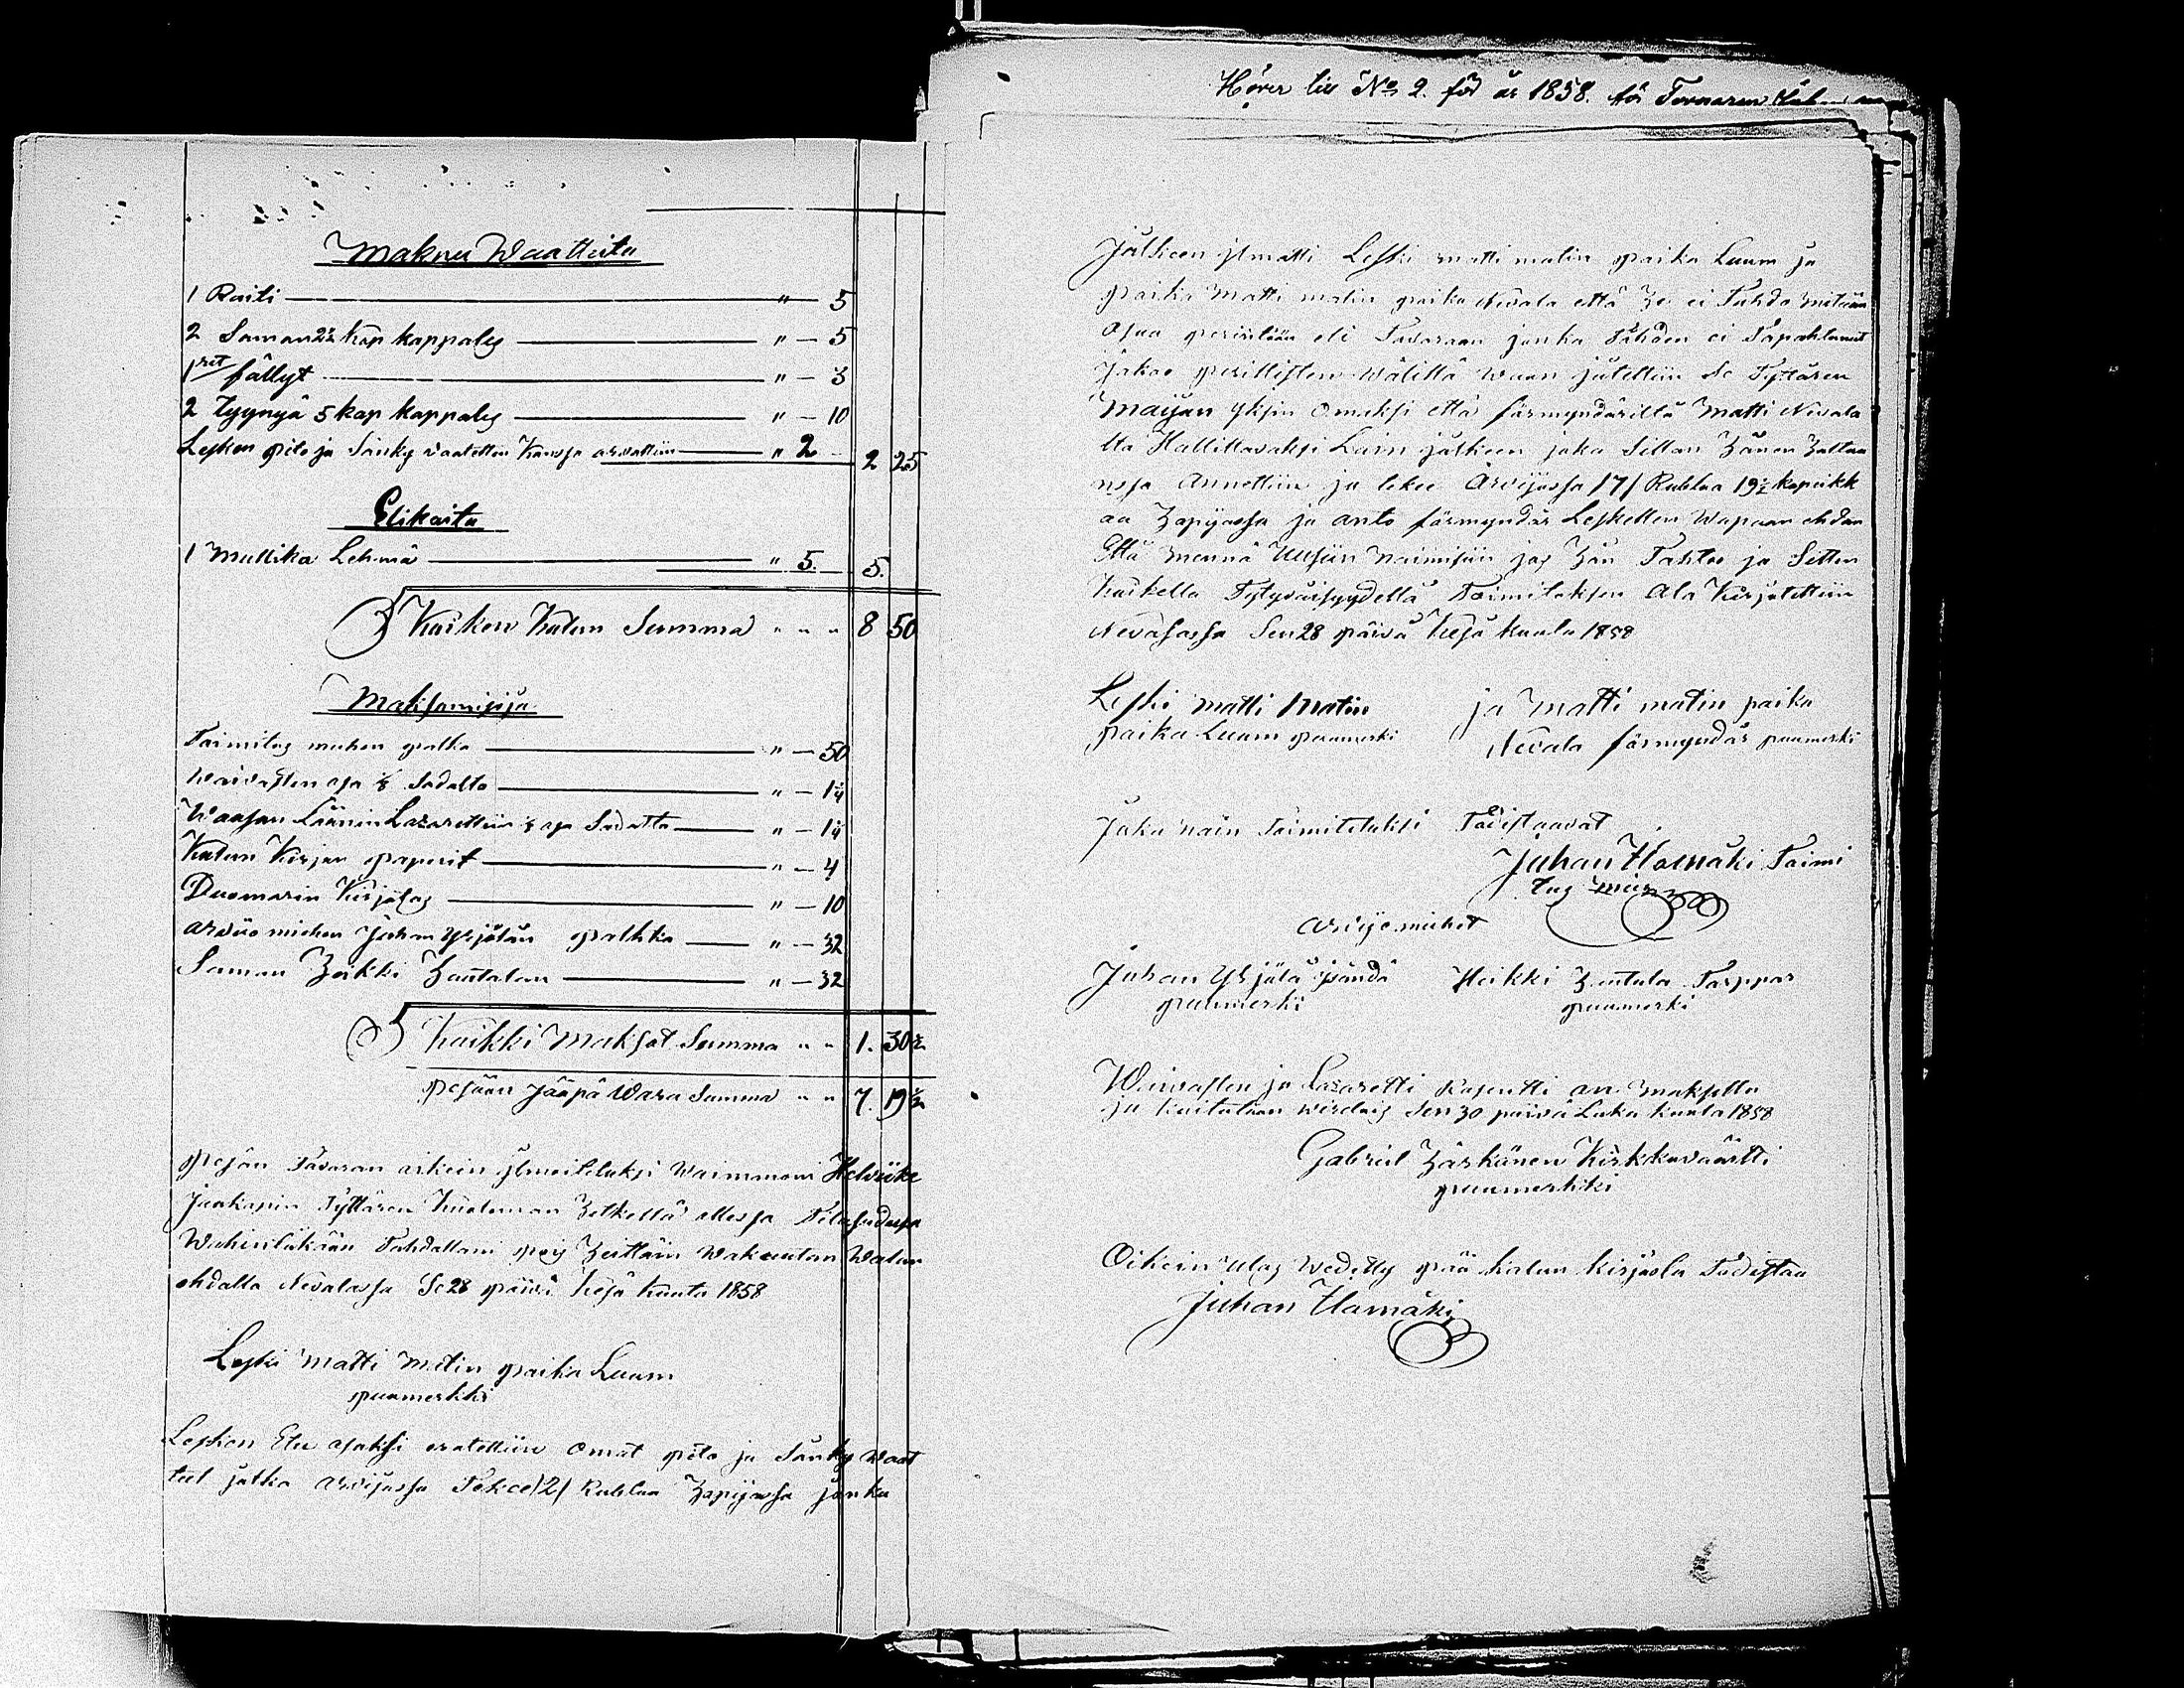 Makuu Waatteita
1 Raiti " — 5
2 Saman 2½ kop kappales " — 5
1 ret fällyt " — 3
2 Tyynyä 5 kap kappales " — 10
Lesken pito ja Sänky vaatetten kanssa arvattiin " 2 — 2 25
Elikoita
1 Mullika Lehmä " 5. — 5.
Kaiken kalun Summa " " " 8 50
Maksamisija
Toimitus miehen palka " — 50
Waivasten osa ⅛ Sadalta " —
Waasan Läänin Lazarettiin ⅛ osa Sadalta " —
Kalun Kirjan paperit " — 4
Duomarin Kirjotus " — 10
arviio miehen Juhan Yrjälän palkka " — 32
Saman Heikki Hautalan " — 32
Kaikki Maksot Summa " " 1. 30½
pesään Jääpä Wara Summa " " 7. 19½
Pesän Tavaran oikein ilmoiteluksi Waimmoni Helviike
Jaakopin Tyttären kuoleman Hetkellä ollessa
Tahdallani pois Heittäin wakuutan Walan
ehdalla Nevalassa Se 28 päivä kesä kuuta 1858
Leski Matti Matin poika Luum
puumerkki
Lesken Etu osaksi erotettiin omat pito ja Sänky waat
teet jotka arvijossa Tekee /2/ Rublaa Hopijassa jonka
Hörer till No 2. för år 1858.
Jälkeen ilmotti Leski matti matin poika Luum ja
poika Matti matin poika Nevala että He ei Tahdo mitään
osaa perintöön eli Tavaraan jonka Tähden ei Tapahtunut
Jakoo perillisten wälillä waan jätettiin Se Tyttären
Maijan yksin omaksi että förmyndärillä Matti Nevala
lla Hallittavaksi Lain jälkeen joka Sillan Hänen Haltuu
nsa Annettiin ja tekee Arvijossa /7/ Rublaa 19½ kopeikk
aa Hopijassa ja anto förmyndär Leskellen Wapaan ehdon
Että mennä Uusiin naimisiin jos Hän Tahtoo ja Sitten
kaikella Tytyväisyydellä Toimituksen Ala Kirjotettiin
Nevalassa Sen 28 päivä kesä kuuta 1858
Leski Matti Matin ja Matti matin poika
poika Luum puumerki Nevala förmyndär puumerki
Joka näin Toimiteluksi Todistaavat
Juhan Hamäki Toimi
tus mies
arvijo miehet
Juhan Yrjälä Isändä Heikki Hautala Torppar
puumerki puumerki
Waivasten ja Lazaretti Rosentti on maksettu
ja kuitataan Sen 30 päivä Loka kuuta 1858
Gabriel Härkänen Kirkkovääртti
puumerkki
Oikein Ulos wedetty pää kalun kirjasta Todistaa
Juhan Hamäki